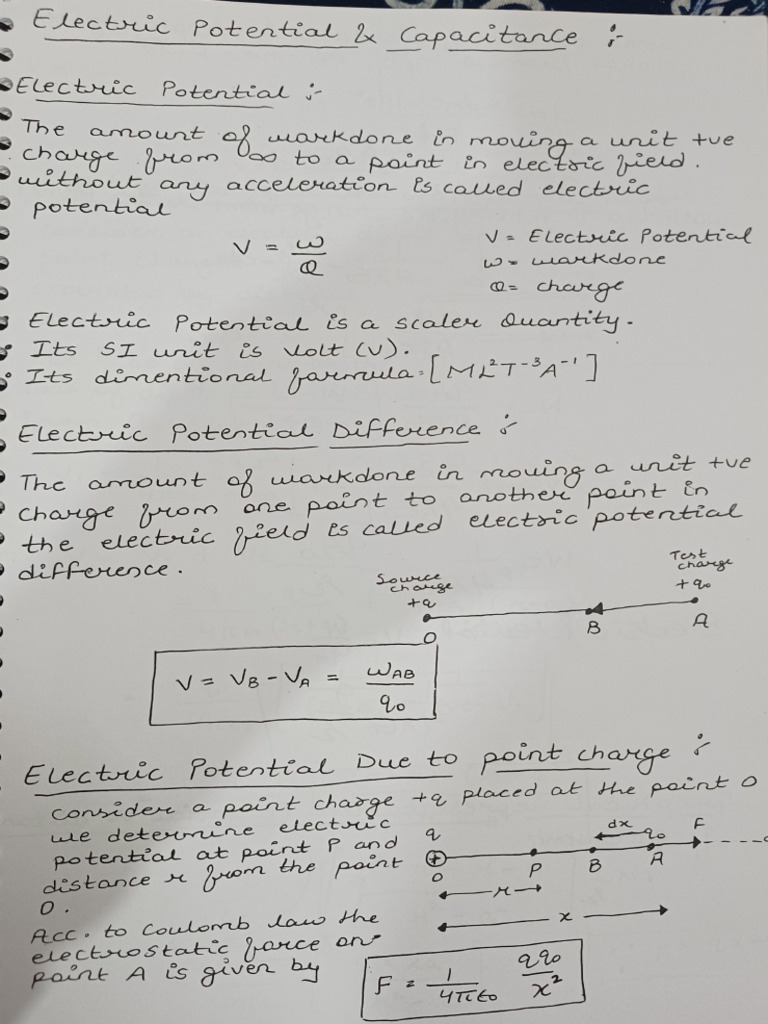 Electric Potential & Capacitance :-
Electric Potential :-
The amount of workdone in moving a unit +ve
charge from ∞ to a point in electric field.
without any acceleration is called electric
potential
V = w/Q
V = Electric Potential
w = workdone
Q = charge
Electric Potential is a scaler Quantity.
Its SI unit is Volt (V).
Its dimentional formula = [ML²T⁻³A⁻¹]
Electric Potential Difference :-
The amount of workdone in moving a unit +ve
charge from one point to another point in
the electric field is called electric potential
difference.
Source charge +q
Test charge +q₀
O B A
V = V_B - V_A = W_AB/q₀
Electric Potential Due to point charge :-
consider a point charge +q placed at the point O
we determine electric
potential at point P and
distance r from the point
O.
q dx q₀ F
O P B A
r
x
Acc. to Coulomb law the
electrostatic force on
point A is given by
F = 1/4πε₀ qq₀/x²